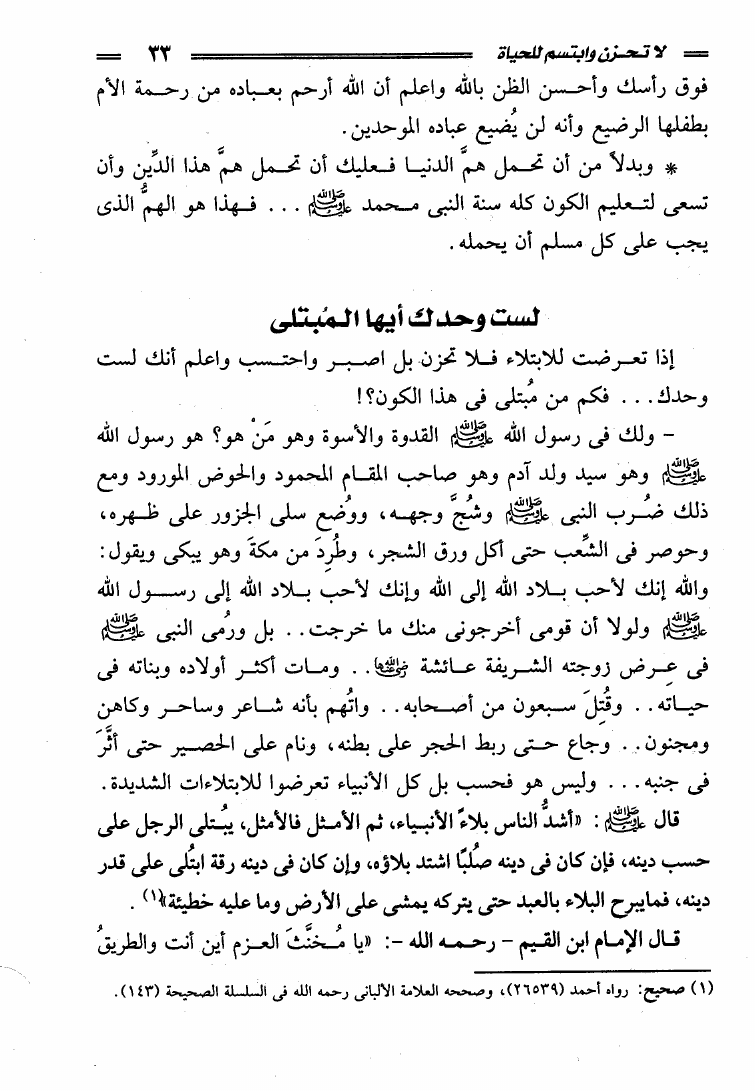 لا تحزن وابتسم للحياة ٣٣
فوق رأسك وأحسن الظن بالله واعلم أن الله أرحم بعباده من رحمة الأم
بطفلها الرضيع وأنه لن يُضيع عباده الموحدين.
* وبدلاً من أن تحمل همَّ الدنيا فعليك أن تحمل همَّ هذا الدِّين وأن
تسعى لتعليم الكون كله سنة النبى محمد ﷺ ... فهذا هو الهمُّ الذى
يجب على كل مسلم أن يحمله.
لست وحدك أيها المُبتلى
إذا تعرضت للابتلاء فلا تحزن بل اصبر واحتسب واعلم أنك لست
وحدك... فكم من مُبتلى فى هذا الكون؟!
- ولك فى رسول الله ﷺ القدوة والأسوة وهو مَنْ هو؟ هو رسول الله
ﷺ وهو سيد ولد آدم وهو صاحب المقام المحمود والحوض المورود ومع
ذلك ضُرب النبى ﷺ وشُجَّ وجهه، ووُضع سلى الجزور على ظهره،
وحوصر فى الشِّعب حتى أكل ورق الشجر، وطُرِدَ من مكة وهو يبكى ويقول:
والله إنك لأحب بلاد الله إلى الله وإنك لأحب بلاد الله إلى رسول الله
ﷺ ولولا أن قومى أخرجونى منك ما خرجت.. بل ورُمى النبى ﷺ
فى عِرض زوجته الشريفة عائشة رضي الله عنها.. ومات أكثر أولاده وبناته فى
حياته.. وقُتِلَ سبعون من أصحابه.. واتُهم بأنه شاعر وساحر وكاهن
ومجنون.. وجاع حتى ربط الحجر على بطنه، ونام على الحصير حتى أثَّرَ
فى جنبه... وليس هو فحسب بل كل الأنبياء تعرضوا للابتلاءات الشديدة.
قال ﷺ: «أشدُّ الناس بلاءً الأنبياء، ثم الأمثل فالأمثل، يُبتلى الرجل على
حسب دينه، فإن كان فى دينه صُلبًا اشتد بلاؤه، وإن كان فى دينه رقة ابتُلى على قدر
دينه، فمايبرح البلاء بالعبد حتى يتركه يمشى على الأرض وما عليه خطيئة»(١).
قال الإمام ابن القيم - رحمه الله -: «يا مُخنَّثَ العزم أين أنت والطريقُ
(١) صحيح: رواه أحمد (٢٦٥٣٩)، وصححه العلامة الألبانى رحمه الله فى السلسلة الصحيحة (١٤٣).